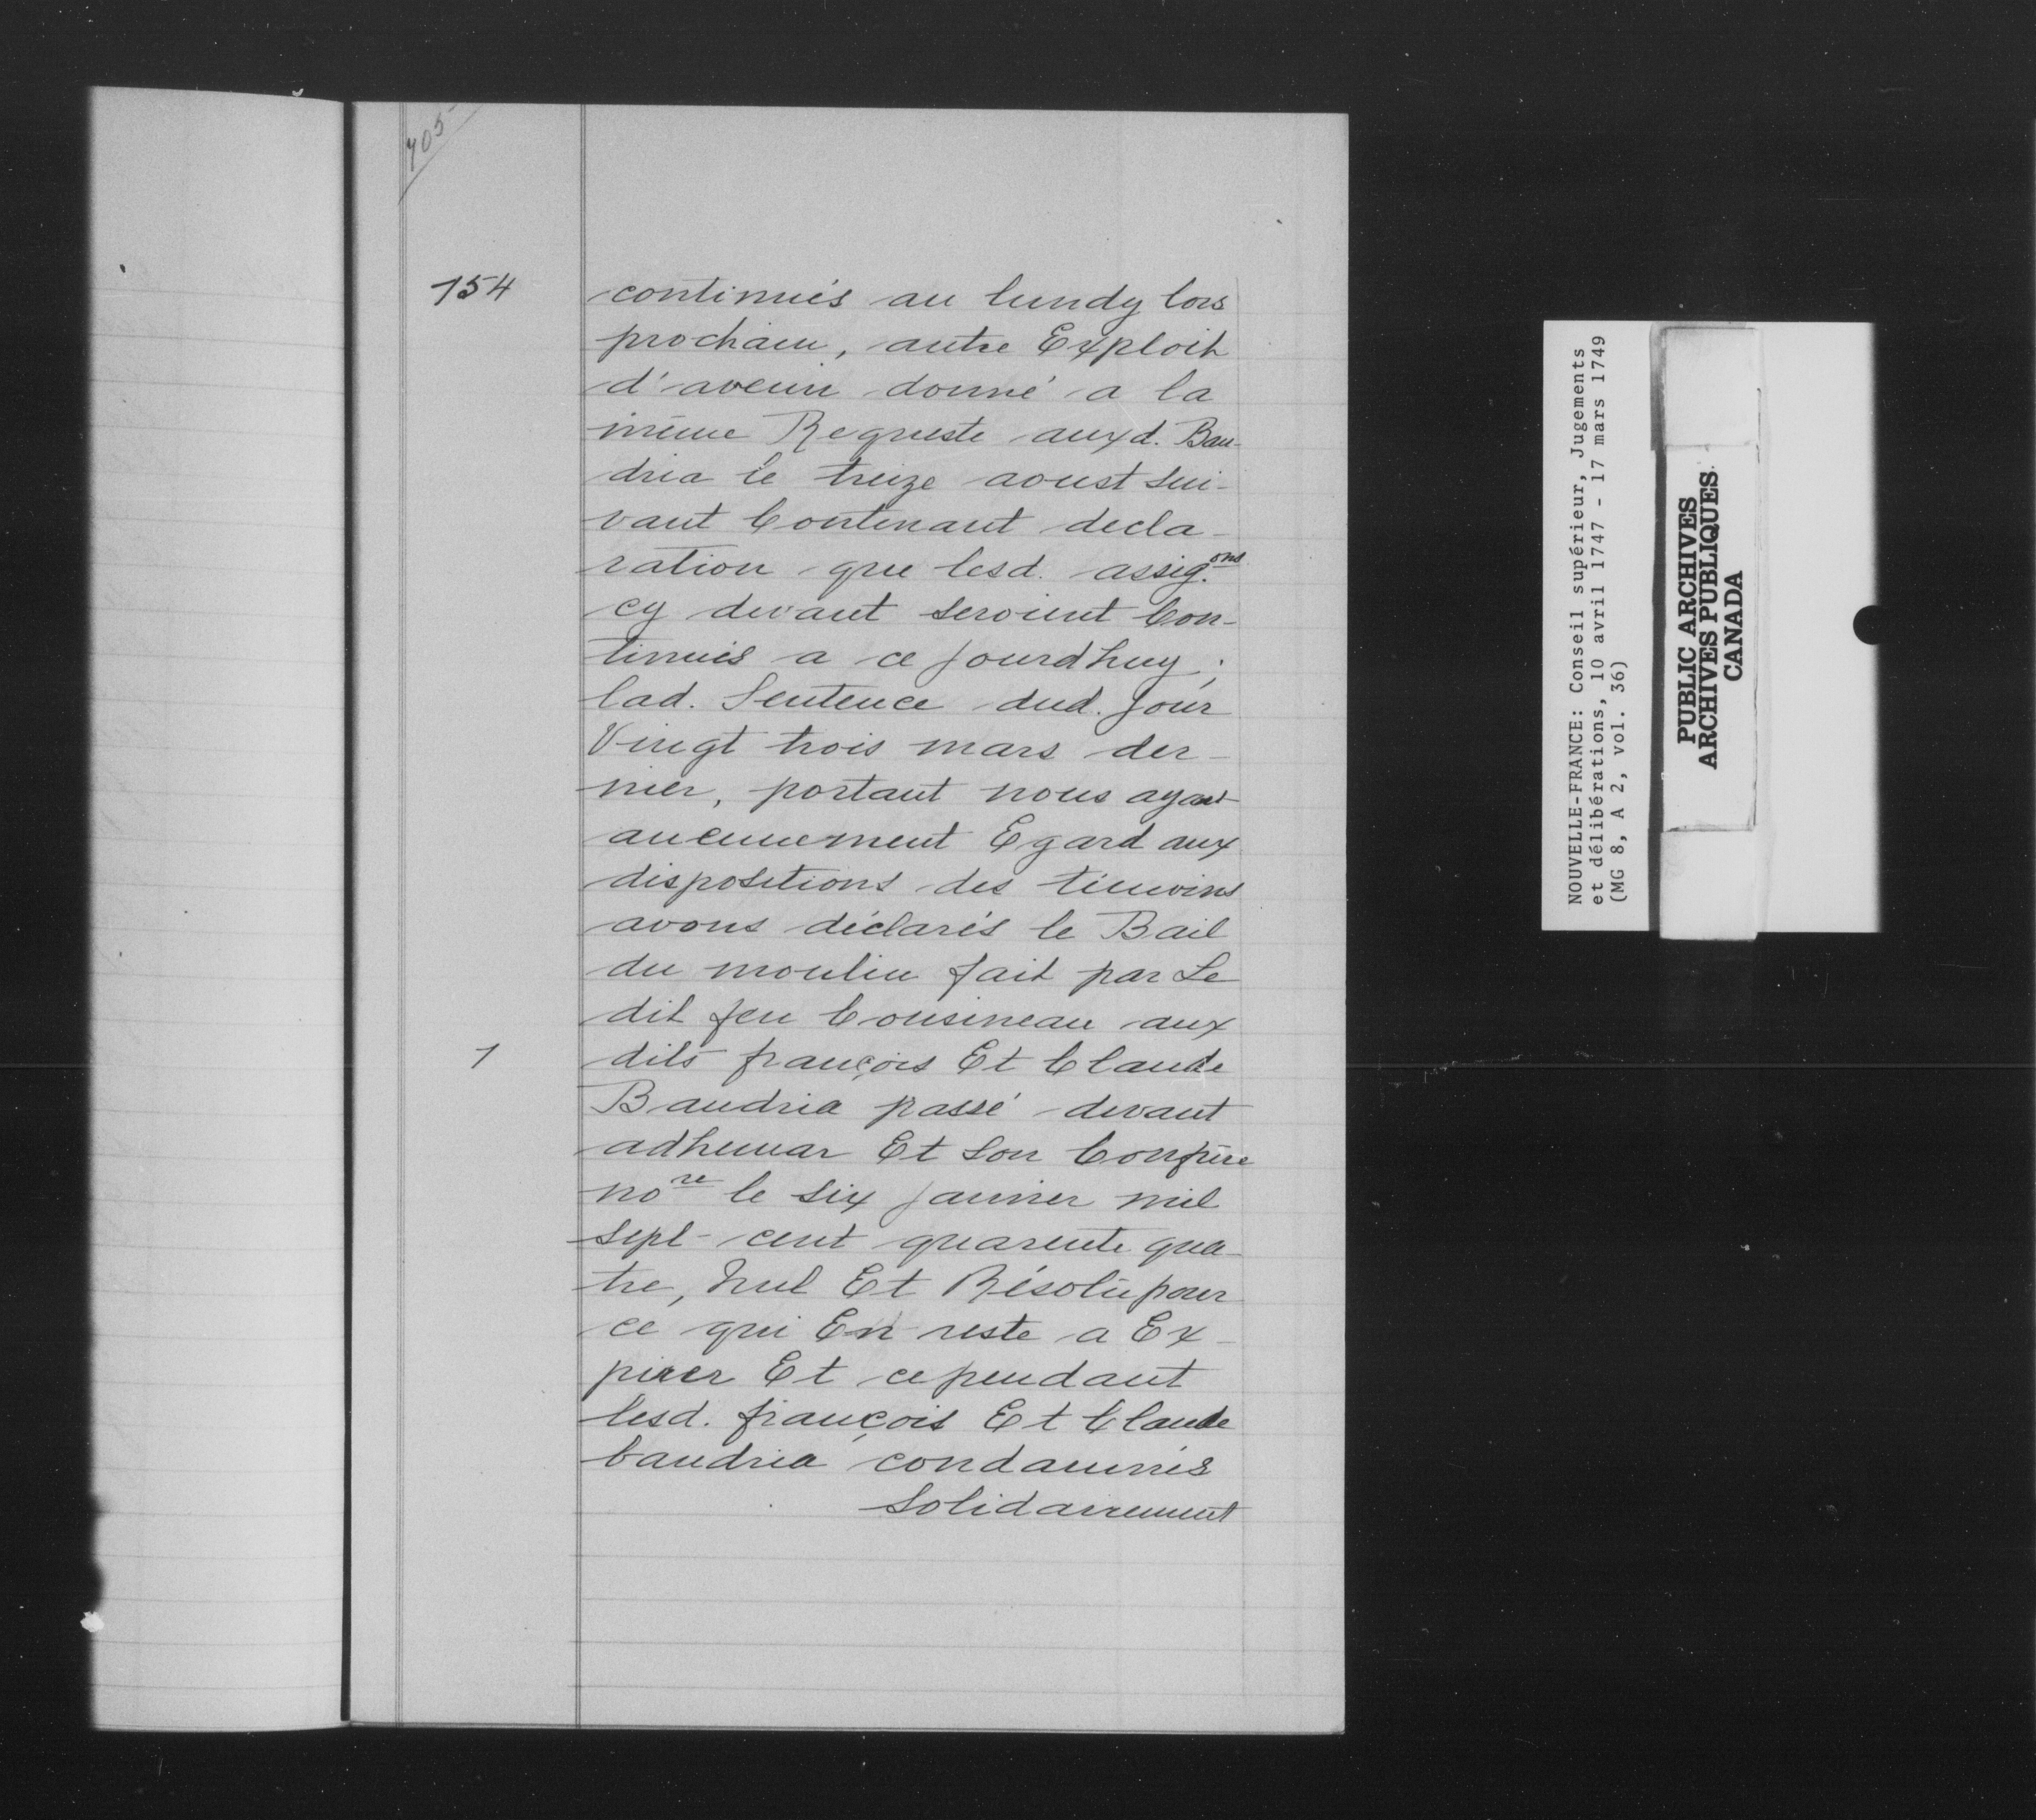 705
154
continués au lundy lors
prochain, autre Exploit
d'avenir donné a la
même Requeste auxd. Bau-
dria le treize aoust sui-
vant Contenant decla-
ration que lesd. assig.ons
cy devant seroient Con-
tinués a ce jourdhuy;
lad. Sentence dud. Jour
Vingt trois mars der-
nier, portant nous ayant
aucunement Egard aux
dispositions des témoins
avons déclarés le Bail
du moulin fait par Le
dit feu Cousineau aux
1
dits françois Et Claude
Baudria passé devant
adhemar Et Son Confrère
nore le Six janvier mil
sept-cent quarente qua-
tre, Nul Et Résolu pour
ce qui En reste a Ex-
pirer Et cependant
lesd. françois Et Claude
baudria condamnés
Solidairement
NOUVELLE-FRANCE: Conseil supérieur, Jugements
et délibérations, 10 avril 1747 - 17 mars 1749
(MG 8, A 2, vol. 36)
PUBLIC ARCHIVES
ARCHIVES PUBLIQUES
CANADA